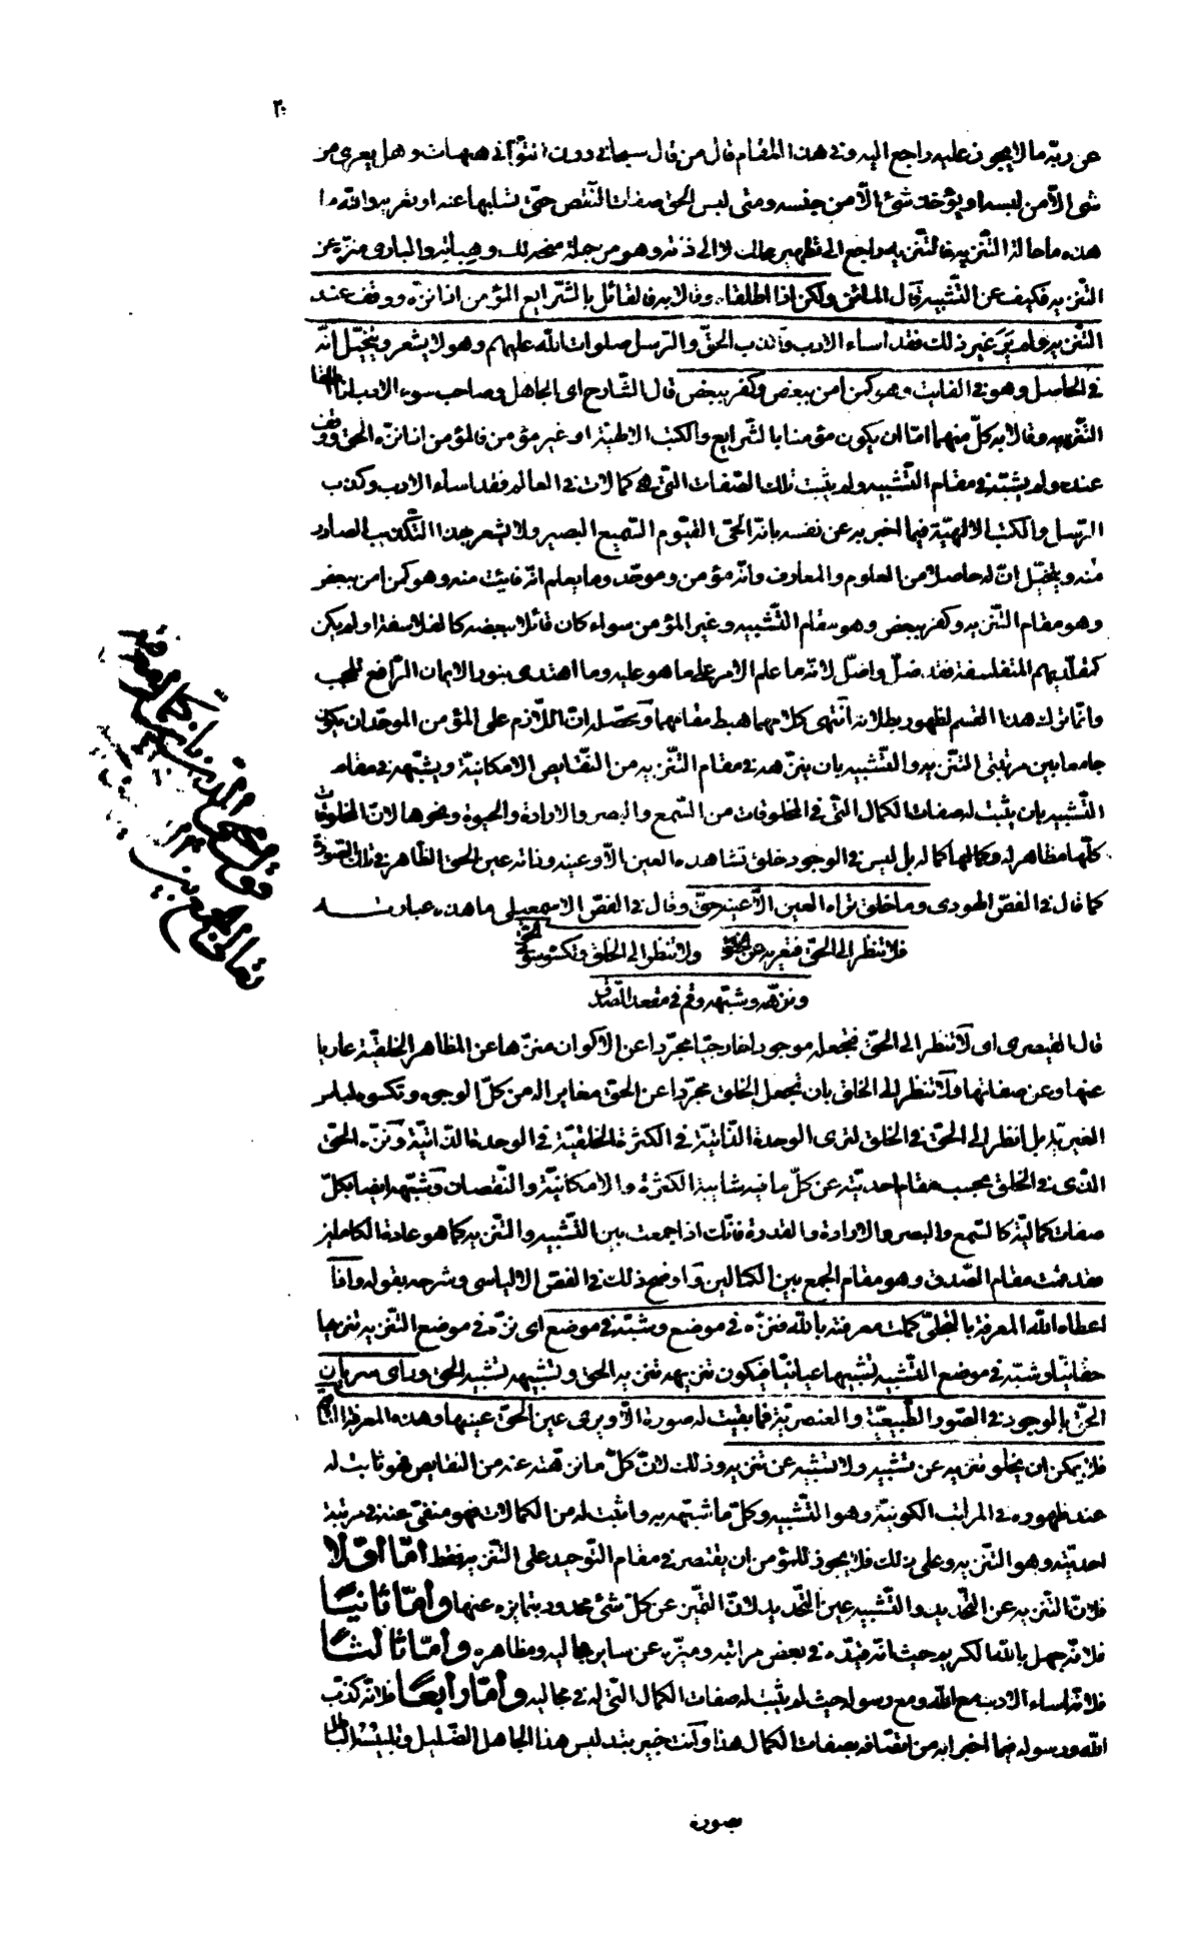 ٢٠
عن ربّه ما لا يجوز عليه راجع اليه وفى هذا المقام قال من قال سبحانى دون التوانى هيهات وهل يعرى من
شئ الا من لبسه او يؤخذ شئ الّا من حبسه ومتى لبس الحق صفات النّقص حتّى تسلبها عنه او تعريه والله ما
هذه ما حالة التّنزيه فالتّنزيه راجع الى تطهير محلّك لا الى ذاته وهو من جملة منحه لك وهباته والبارى منزّه عن
التّنزيه فكيف عن التّشبيه قال الماتن ولكن اذا اطلقاه وقالا به فالقائل بالشّرايع المؤمن اذا نزّه ووقف عند
التّنزيه ولم يَرَ غير ذلك فقد اساء الادب واكذب الحقّ والرّسل صلوات الله عليهم وهو لا يشعر ويتخيّل انّه
فى الحاصل وهو فى الفايت وهو كمن امن ببعض وكفر ببعض قال الشّارح اى الجاهل وصاحب سوء الادب اذا اطلقا
التّنزيه وقالا به كلّ منهما امّا ان يكون مؤمنا بالشّرايع والكتب الالهيّة او غير مؤمن فالمؤمن اذا نزّه الحق ووقف
عنده ولم يشبّه فى مقام التّشبيه ولم يثبت تلك الصّفات الّتى هى كمالات فى العالم فقد اساء الادب وكذب
الرّسل والكتب الالهيّة فيما اخبر به عن نفسه بانّه الحىّ القيّوم السّميع البصير ولا يشعر بهذا التّكذيب الصادر
منه ويتخيّل انّ له حاصلا من العلوم والمعارف وانّه مؤمن وموحّد وما يعلم انّه فايت منه وهو كمن امن ببعض
وهو مقام التّنزيه وكفر ببعض وهو مقام التّشبيه وغير المؤمن سواء كان قائلا بعضه كالفلاسفة او لم يكن
كمقلّديهم المتفلسفة فقد ضلّ واضلّ لانّه ما علم الامر على ما هو عليه وما اهتدى بنور الايمان الرّافع للحجب
وانّما ترك هذا القسم لظهور بطلانه انتهى كلامهما هبط مقامهما وتحصّله انّ اللّازم على المؤمن الموحّد ان يكون
جامعا بين مرتبتى التّنزيه والتّشبيه بان ينزّهه فى مقام التّنزيه من النّقايص الامكانيّة ويشبّهه فى مقام
التّشبيه بان يثبت له صفات الكمال الّتى فى المخلوقات من السّمع والبصر والارادة والحيوة ونحوها لانّ المخلوقات
كلّها مظاهر له وكمالها كماله بل ليس فى الوجود خلق تشاهده العين الّا وعينه وذاته عين الحق الظّاهر فى تلك الصّورة
كما قال فى الفصّ الهودى وما خلق تراه العين الّا عينه حقّ وقال فى الفصّ الاسمعيلى ما هذه عبارته
فلا تنظر الى الحقّ فتعريه عن الخلق ولا تنظر الى الخلق وتكسوه سوى الحقّ
ونزّهه وشبّهه وقم فى مقعد الصّدق
قال القيصرى اى لا تنظر الى الحقّ فتجعله موجودا خارجيّا مجرّدا عن الاكوان منزّها عن المظاهر الخلقيّة عاريا
عنها وعن صفاتها ولا تنظر الى الخلق بان تجعل الخلق مجرّدا عن الحق مغايرا له من كلّ الوجوه وتكسوه لباس
الغيريّة بل انظر الى الحقّ فى الخلق لترى الوحدة الذّاتيّة فى الكثرة الخلقيّة فى الوحدة الذّاتيّة ونزّه الحقّ
الّذى فى الخلق بحسب مقام احديّته عن كلّ ما فيه شايبة الكثرة والامكانيّة والنّقصان وشبّهه ايضا بكلّ
صفات كماليّة كالسّمع والبصر والارادة والقدرة فانّك اذا جمعت بين التّشبيه والتّنزيه كما هو عادة الكاملين
فقد قمت مقام الصّدق وهو مقام الجمع بين الكمالين واوضح ذلك فى الفصّ الالياسى وشرحه بقوله واذا
اعطاه الله المعرفة بالتجلّى كملت معرفته بالله فنزّه فى موضع وشبّه فى موضع اى نزّه فى موضع التّنزيه تنزيها
حقّانيّا وشبّه فى موضع التّشبيه تشبيها عيانيّا فيكون تنزيهه تنزيه الحق وتشبيهه تشبيه الحق وراى سريان
الحقّ بالوجود فى الصّور الطّبيعيّة والعنصريّة فما بقيت له صورة الّا ويرى عين الحقّ عينها وهذه المعرفة التّامّة
فلا يمكن ان يخلو تنزيه عن تشبيه ولا تشبيه عن تنزيه وذلك لانّ كلّ ما نزهته عنه من النّقايص فهو ثابت له
عند ظهوره فى المراتب الكونيّة وهو التّشبيه وكلّ ما شبّهته به واثبت له من الكمالات فهو منفىّ عنه فى مرتبة
احديّته وهو التّنزيه وعلى ذلك فلا يجوز للمؤمن ان يقتصر فى مقام التّوحيد على التّنزيه فقط امّا اوّلا
فلانّ التّنزيه عن التّحديد والتّشبيه عين التّحديد لانّ التميّز عن كلّ شئ محدود بتمايزه عنها وامّا ثانيًا
فلانّه جهل بالله الكريم حيث انّه قيّده فى بعض مراتبه وميّزه عن ساير مجاليه ومظاهره وامّا ثالثًا
فلانّه اساء الادب مع الله ومع رسوله حيث لم يثبت له صفات الكمال الّتى له فى مجاليه وامّا رابعًا فلانّه كذّب
الله ورسوله فيما اخبرا به من اتّصافه بصفات الكمال هذا وانت خبير بتدليس هذا الجاهل الضّليل وتلبيسه الباطل
بصورة